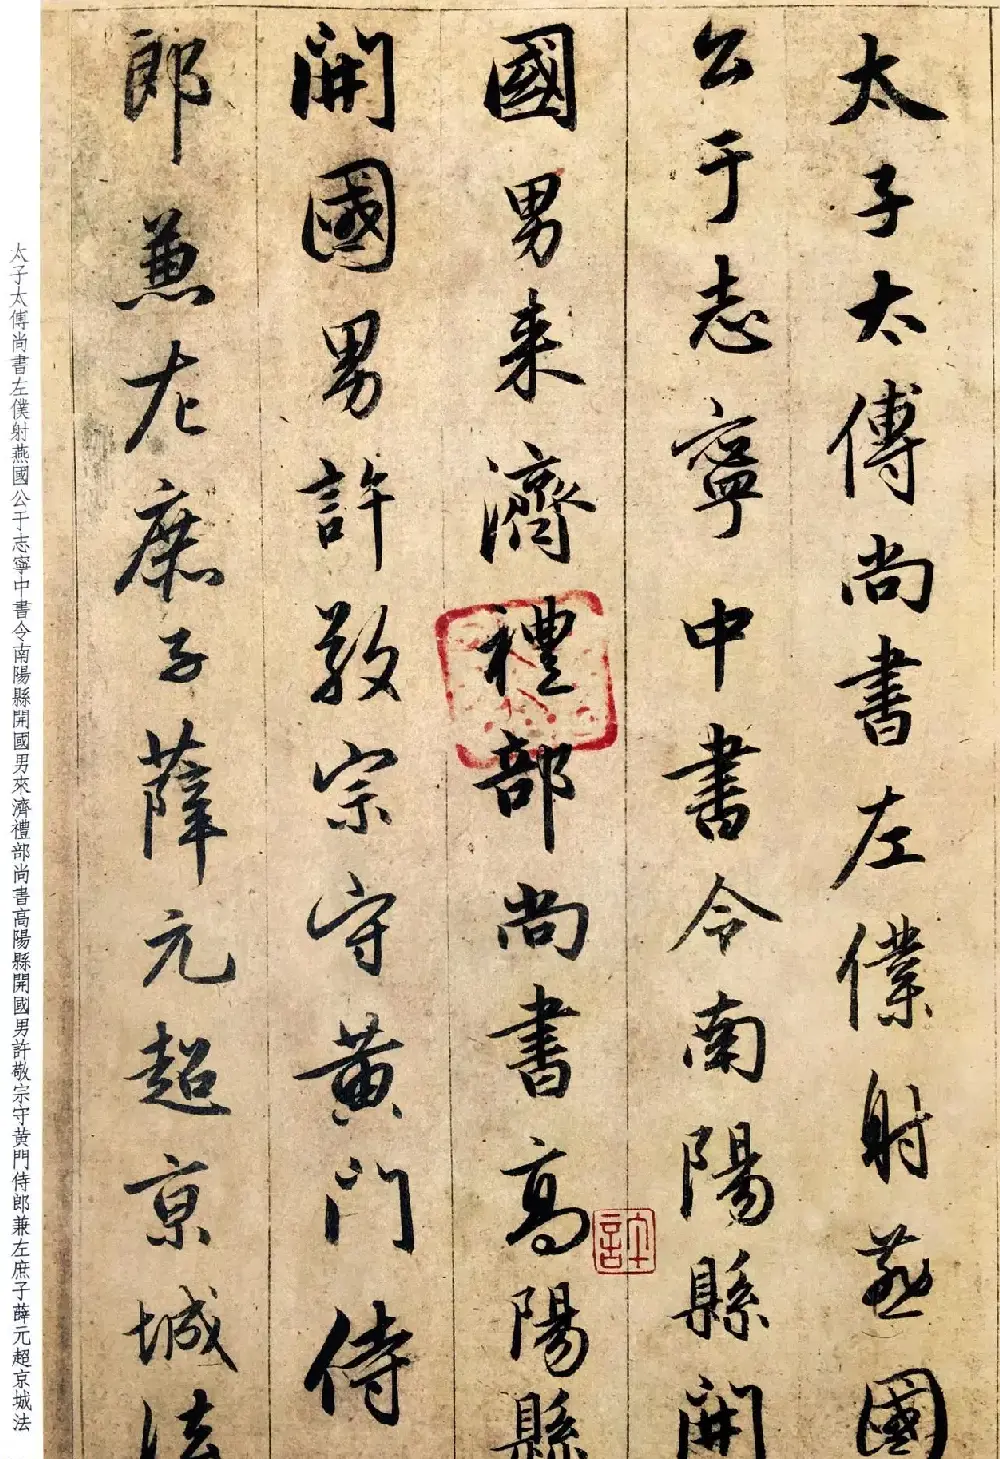 太子太傅尚書左僕射燕國
公于志寧中書令南陽縣開
國男来濟禮部尚書高陽縣
開國男許敬宗守黄門侍
郎兼左庶子薛元超京城法
許
太子太傅尚書左僕射燕國公于志寧中書令南陽縣開國男來濟禮部尚書高陽縣開國男許敬宗守黄門侍郎兼左庶子薛元超京城法